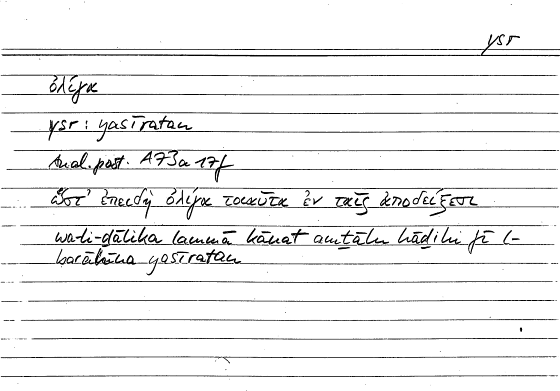 ysr
ὀλίγα
ysr: yasīratan
Anal. post. A73a 17f
ὥστ' ἐπειδὴ ὀλίγα τοιαῦτα ἐν ταῖς ἀποδείξεσι
wa-li-ḏālika lammā kānat amṯālu hāḏihi fī l-
barāhīna yasīratan